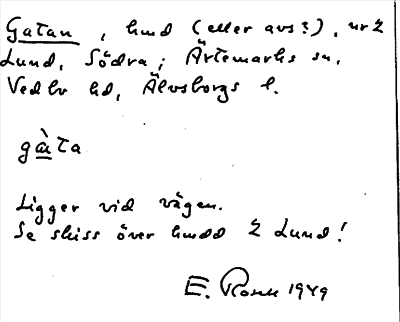 Gatan, hmd (eller avs?), nr 2
Lund, Södra; Ärtemarks sn,
Vedbo hd, Älvsborgs l.
gàta
Ligger vid vägen.
Se skiss över hmdd 2 Lund!
E. Rosell 1949